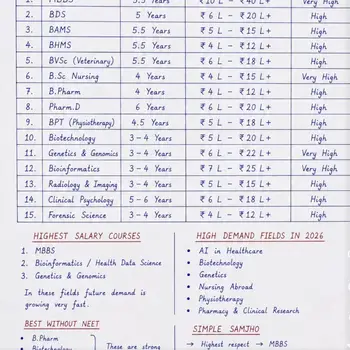 1. MBBS 5.5 Years ₹ 10 L - ₹ 40 L+ Very High
2. BDS 5 Years ₹ 6 L - ₹ 20 L+ High
3. BAMS 5.5 Years ₹ 5 L - ₹ 15 L+ High
4. BHMS 5.5 Years ₹ 4 L - ₹ 12 L+ High
5. BVSc (Veterinary) 5.5 Years ₹ 6 L - ₹ 18 L+ High
6. B.Sc Nursing 4 Years ₹ 4 L - ₹ 15 L+ Very High
7. B.Pharm 4 Years ₹ 4 L - ₹ 12 L+ High
8. Pharm.D 6 Years ₹ 6 L - ₹ 20 L+ High
9. BPT (Physiotherapy) 4.5 Years ₹ 5 L - ₹ 18 L+ High
10. Biotechnology 3-4 Years ₹ 5 L - ₹ 20 L+ High
11. Genetics & Genomics 3-4 Years ₹ 6 L - ₹ 22 L+ Very High
12. Bioinformatics 3-4 Years ₹ 7 L - ₹ 25 L+ Very High
13. Radiology & Imaging 3-4 Years ₹ 5 L - ₹ 15 L+ High
14. Clinical Psychology 5-6 Years ₹ 6 L - ₹ 18 L+ High
15. Forensic Science 3-4 Years ₹ 4 L - ₹ 12 L+ High
HIGHEST SALARY COURSES
1. MBBS
2. Bioinformatics / Health Data Science
3. Genetics & Genomics
In these fields future demand is
growing very fast.
HIGH DEMAND FIELDS IN 2026
• AI in Healthcare
• Biotechnology
• Genetics
• Nursing Abroad
• Physiotherapy
• Pharmacy & Clinical Research
BEST WITHOUT NEET
• B.Pharm
• Biotechnology
These are strong
SIMPLE SAMJHO
→ Highest respect → MBBS